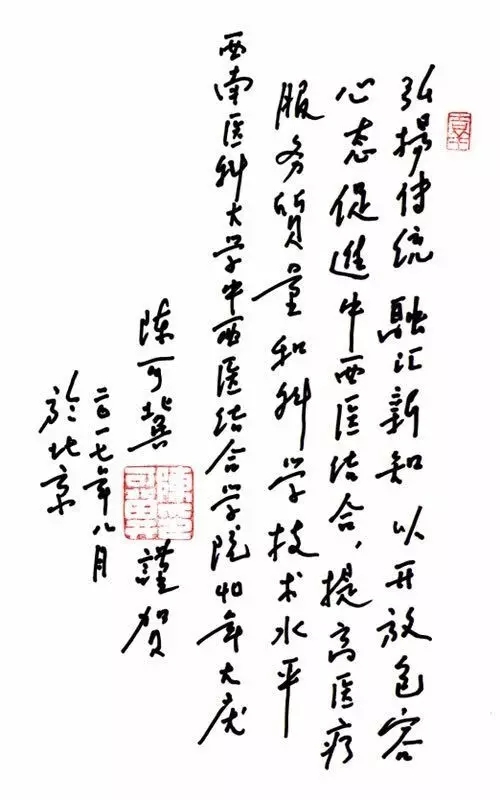 弘揚传统 融汇新知 以开放包容
心态促進中西医结合，提高医疗
服务質量和科学技术水平
西南医科大学中西医结合学院40年大庆
陳可冀 謹贺
二〇一七年八月
於北京